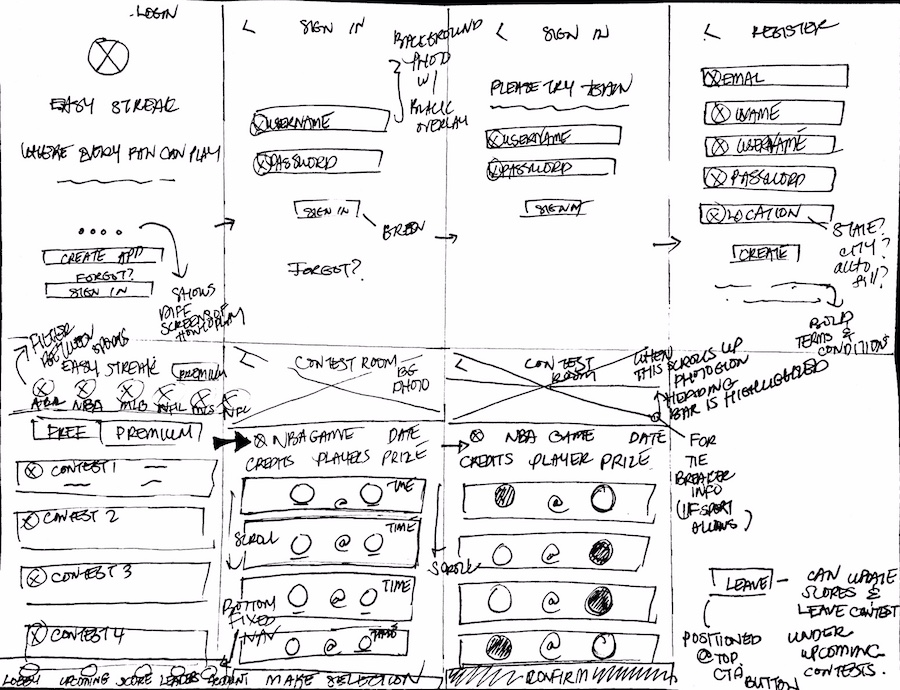 LOGIN
EASY STREAK
WHERE EVERY FAN CAN PLAY
CREATE APP
FORGOT?
SIGN IN
SHOWS
DIFF
SCREENS OF
HOW TO PLAY
SIGN IN
BACKGROUND
PHOTO
W/
BLACK
OVERLAY
USERNAME
PASSWORD
SIGN IN
GREEN
FORGOT?
SIGN IN
PLEASE TRY AGAIN
USERNAME
PASSWORD
SIGN IN
REGISTER
EMAIL
NAME
USERNAME
PASSWORD
LOCATION
STATE?
CITY?
AUTO
FILL?
CREATE
BOLD
TERMS &
CONDITION
FILTER
BETWEEN
SPORTS
EASY STREAK
PREMIUM
NBA MLB NFL MLS NFL
FREE PREMIUM
CONTEST 1
CONTEST 2
CONTEST 3
CONTEST 4
LOBBY UPCOMING SCORE LEADERS ACCOUNT
BOTTOM
FIXED
NAV
CONTEST ROOM
BG
PHOTO
NBA GAME DATE
CREDITS PLAYERS PRIZE
TIME
@
TIME
@
TIME
@
TIME
@
SCROLL
MAKE SELECTION
CONTEST
ROOM
WHEN
THIS SCROLLS UP
PHOTO GION
HEADING
BAR IS HIGHLIGHTED
NBA GAME DATE
CREDITS PLAYER PRIZE
@
@
@
@
SCROLL
CONFIRM
FOR
TIE
BREAKER
INFO
(IF SPORT
ALLOWS)
LEAVE
CAN UPDATE
SCORES &
LEAVE CONTEST
UNDER
UPCOMING
CONTESTS.
POSITIONED
@ TOP
CTA
BUTTON